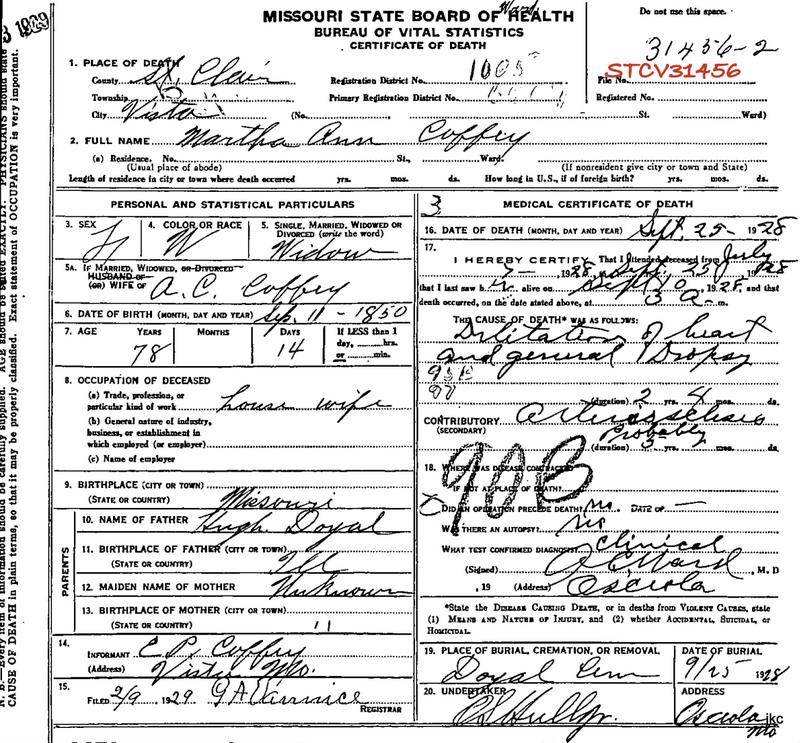 MISSOURI STATE BOARD OF HEALTH
BUREAU OF VITAL STATISTICS
CERTIFICATE OF DEATH
Do not use this space.
31456-2
STCV31456
1. PLACE OF DEATH
County St. Clair Registration District No. 1005 File No.
Township Primary Registration District No. Registered No.
City Vista (No. St. Ward)
2. FULL NAME Martha Ann Coffey
(a) Residence. No. St., Ward.
(Usual place of abode) (If nonresident give city or town and State)
Length of residence in city or town where death occurred yrs. mos. ds. How long in U.S., if of foreign birth? yrs. mos. ds.
PERSONAL AND STATISTICAL PARTICULARS
3. SEX F 4. COLOR OR RACE W 5. SINGLE, MARRIED, WIDOWED OR DIVORCED (write the word) Widow
5A. IF MARRIED, WIDOWED, OR DIVORCED
HUSBAND OF
(OR) WIFE OF A. C. Coffey
6. DATE OF BIRTH (MONTH, DAY AND YEAR) Sep. 11 - 1850
7. AGE YEARS MONTHS DAYS If LESS than 1 day, hrs. or min.
78 14
8. OCCUPATION OF DECEASED
(a) Trade, profession, or
particular kind of work house wife
(b) General nature of industry,
business, or establishment in
which employed (or employer)
(c) Name of employer
9. BIRTHPLACE (CITY OR TOWN)
(STATE OR COUNTRY) Missouri
PARENTS
10. NAME OF FATHER Hugh Doyal
11. BIRTHPLACE OF FATHER (CITY OR TOWN)
(STATE OR COUNTRY) Ill
12. MAIDEN NAME OF MOTHER Unknown
13. BIRTHPLACE OF MOTHER (CITY OR TOWN)
(STATE OR COUNTRY) 11
14.
INFORMANT E P. Coffey
(Address) Vista Mo.
15.
FILED 2/9 1929 REGISTRAR
3 MEDICAL CERTIFICATE OF DEATH
16. DATE OF DEATH (MONTH, DAY AND YEAR) Sept. 25 - 1928
17.
I HEREBY CERTIFY, That I attended deceased from July
7 - 1928, Sept. 25, 1928
that I last saw h er alive on Sept 20, 1928, and that
death occurred, on the date stated above, at 3 a m.
THE CAUSE OF DEATH* WAS AS FOLLOWS:
Dilitation of heart
and general Dropsy
(duration) 2 yrs. 8 mos. ds.
CONTRIBUTORY
(SECONDARY)
Probably
(duration) yrs. mos. ds.
90B
18. WHERE WAS DISEASE CONTRACTED
IF NOT AT PLACE OF DEATH?
DID AN OPERATION PRECEDE DEATH? no. DATE OF —
WAS THERE AN AUTOPSY? no
WHAT TEST CONFIRMED DIAGNOSIS? Clinical
(Signed) , M. D
, 19 (Address) Osceola
*State the DISEASE CAUSING DEATH, or in deaths from VIOLENT CAUSES, state
(1) MEANS AND NATURE OF INJURY, and (2) whether ACCIDENTAL, SUICIDAL, or
HOMICIDAL.
19. PLACE OF BURIAL, CREMATION, OR REMOVAL DATE OF BURIAL
Doyal Cem 9/25 1928
20. UNDERTAKER ADDRESS
Osceola
Mo
jkc